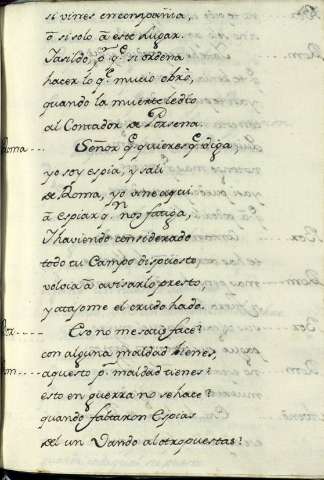 si vines en conpañia,
ò si solo à este lugar.
Iasildo, pª qᵉ si ordena
hacer lo qᵉ mucio obrò,
quando la muerte le dio
al Contador de Porsena.
Roma.... Señor qᵉ quieres qᵉ diga,
yo soy espia, y sali
de Roma, yo vine aqui
à espiar qⁿ nos fatiga,
I haviendo considerado
todo tu Campo dispuesto
volvia à avisarlo presto,
y atajome el crudo hado.
Por..... Eso no me satisface?
con alguna maldad bienes,
Rom.... aquesto pʳ maldad tienes?
esto en guerra no se hace?
quando faltaron Espias
del un Vando al otro puestas?